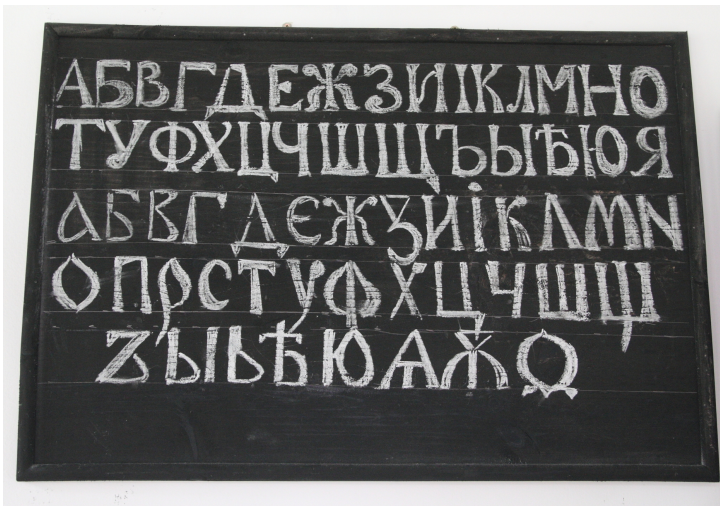 АБВГДЕЖЗИІКЛМНО
ТУФХЦЧШЩЪЫѢЮЯ
АБВГДЕЖꙀИіКЛМN
ОПРСТУФХЦЧШЩ
ZЪІЬѢЮѦѪѺ